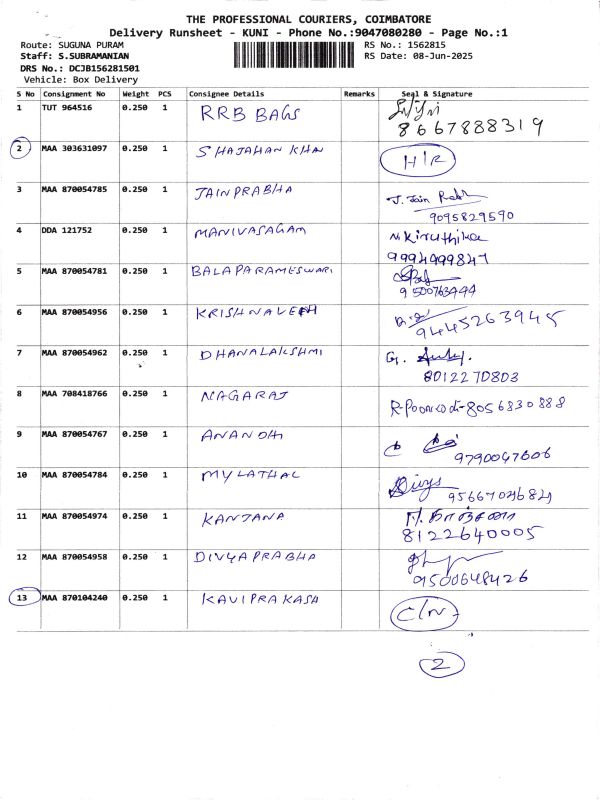 THE PROFESSIONAL COURIERS, COIMBATORE
Delivery Runsheet - KUNI - Phone No.:9047080280 - Page No.:1
Route: SUGUNA PURAM RS No.: 1562815
Staff: S.SUBRAMANIAN RS Date: 08-Jun-2025
DRS No.: DCJB156281501
Vehicle: Box Delivery
S No Consignment No Weight PCS Consignee Details Remarks Seal & Signature
1 TUT 964516 0.250 1 RRB BAGS
8667888319
2 MAA 303631097 0.250 1 SHAJAHAN KHAN H/R
3 MAA 870054785 0.250 1 JAINPRABHA J. Jain
9095829590
4 DDA 121752 0.250 1 MANIVASAGAM N Kiruthika
9994999847
5 MAA 870054781 0.250 1 BALAPARAMESWARI
9500763444
6 MAA 870054956 0.250 1 KRISHNAVENI
9445263945
7 MAA 870054962 0.250 1 DHANALAKSHMI G.
8012270803
8 MAA 708418766 0.250 1 NAGARAJ 8056830888
9 MAA 870054767 0.250 1 ANANDHI
9790047606
10 MAA 870054784 0.250 1 MYLATHAL Divya
11 MAA 870054974 0.250 1 KANJANA
8122640005
12 MAA 870054958 0.250 1 DIVYAPRABHA
9500648426
13 MAA 870104240 0.250 1 KAVIPRAKASH C/N
2